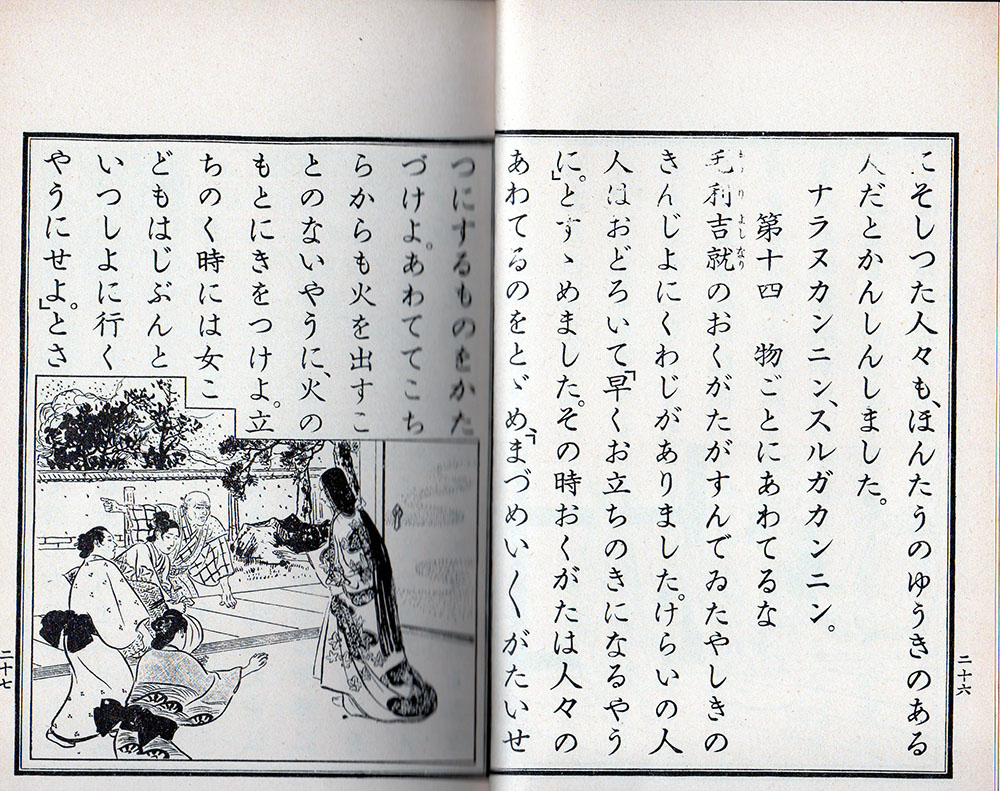 こそしつた人々も、ほんたうのゆうきのある
人だとかんしんしました。
ナラヌカンニン、スルガカンニン。
第十四 物ごとにあわてるな
毛利吉就のおくがたがすんでゐたやしきの
きんじよにくわじがありました。けらいの人
人はおどろいて「早くお立ちのきになるやう
に。」とすゝめました。その時おくがたは人々の
あわてるのをとゞめ、「まづめい〳〵がたいせ
つにするものをかた
づけよ。あわててこち
らからも火を出すこ
とのないやうに、火の
もとにきをつけよ。立
ちのく時には女こ
どもはじぶんと
いつしよに行く
やうにせよ。」とさ
二十六
二十七